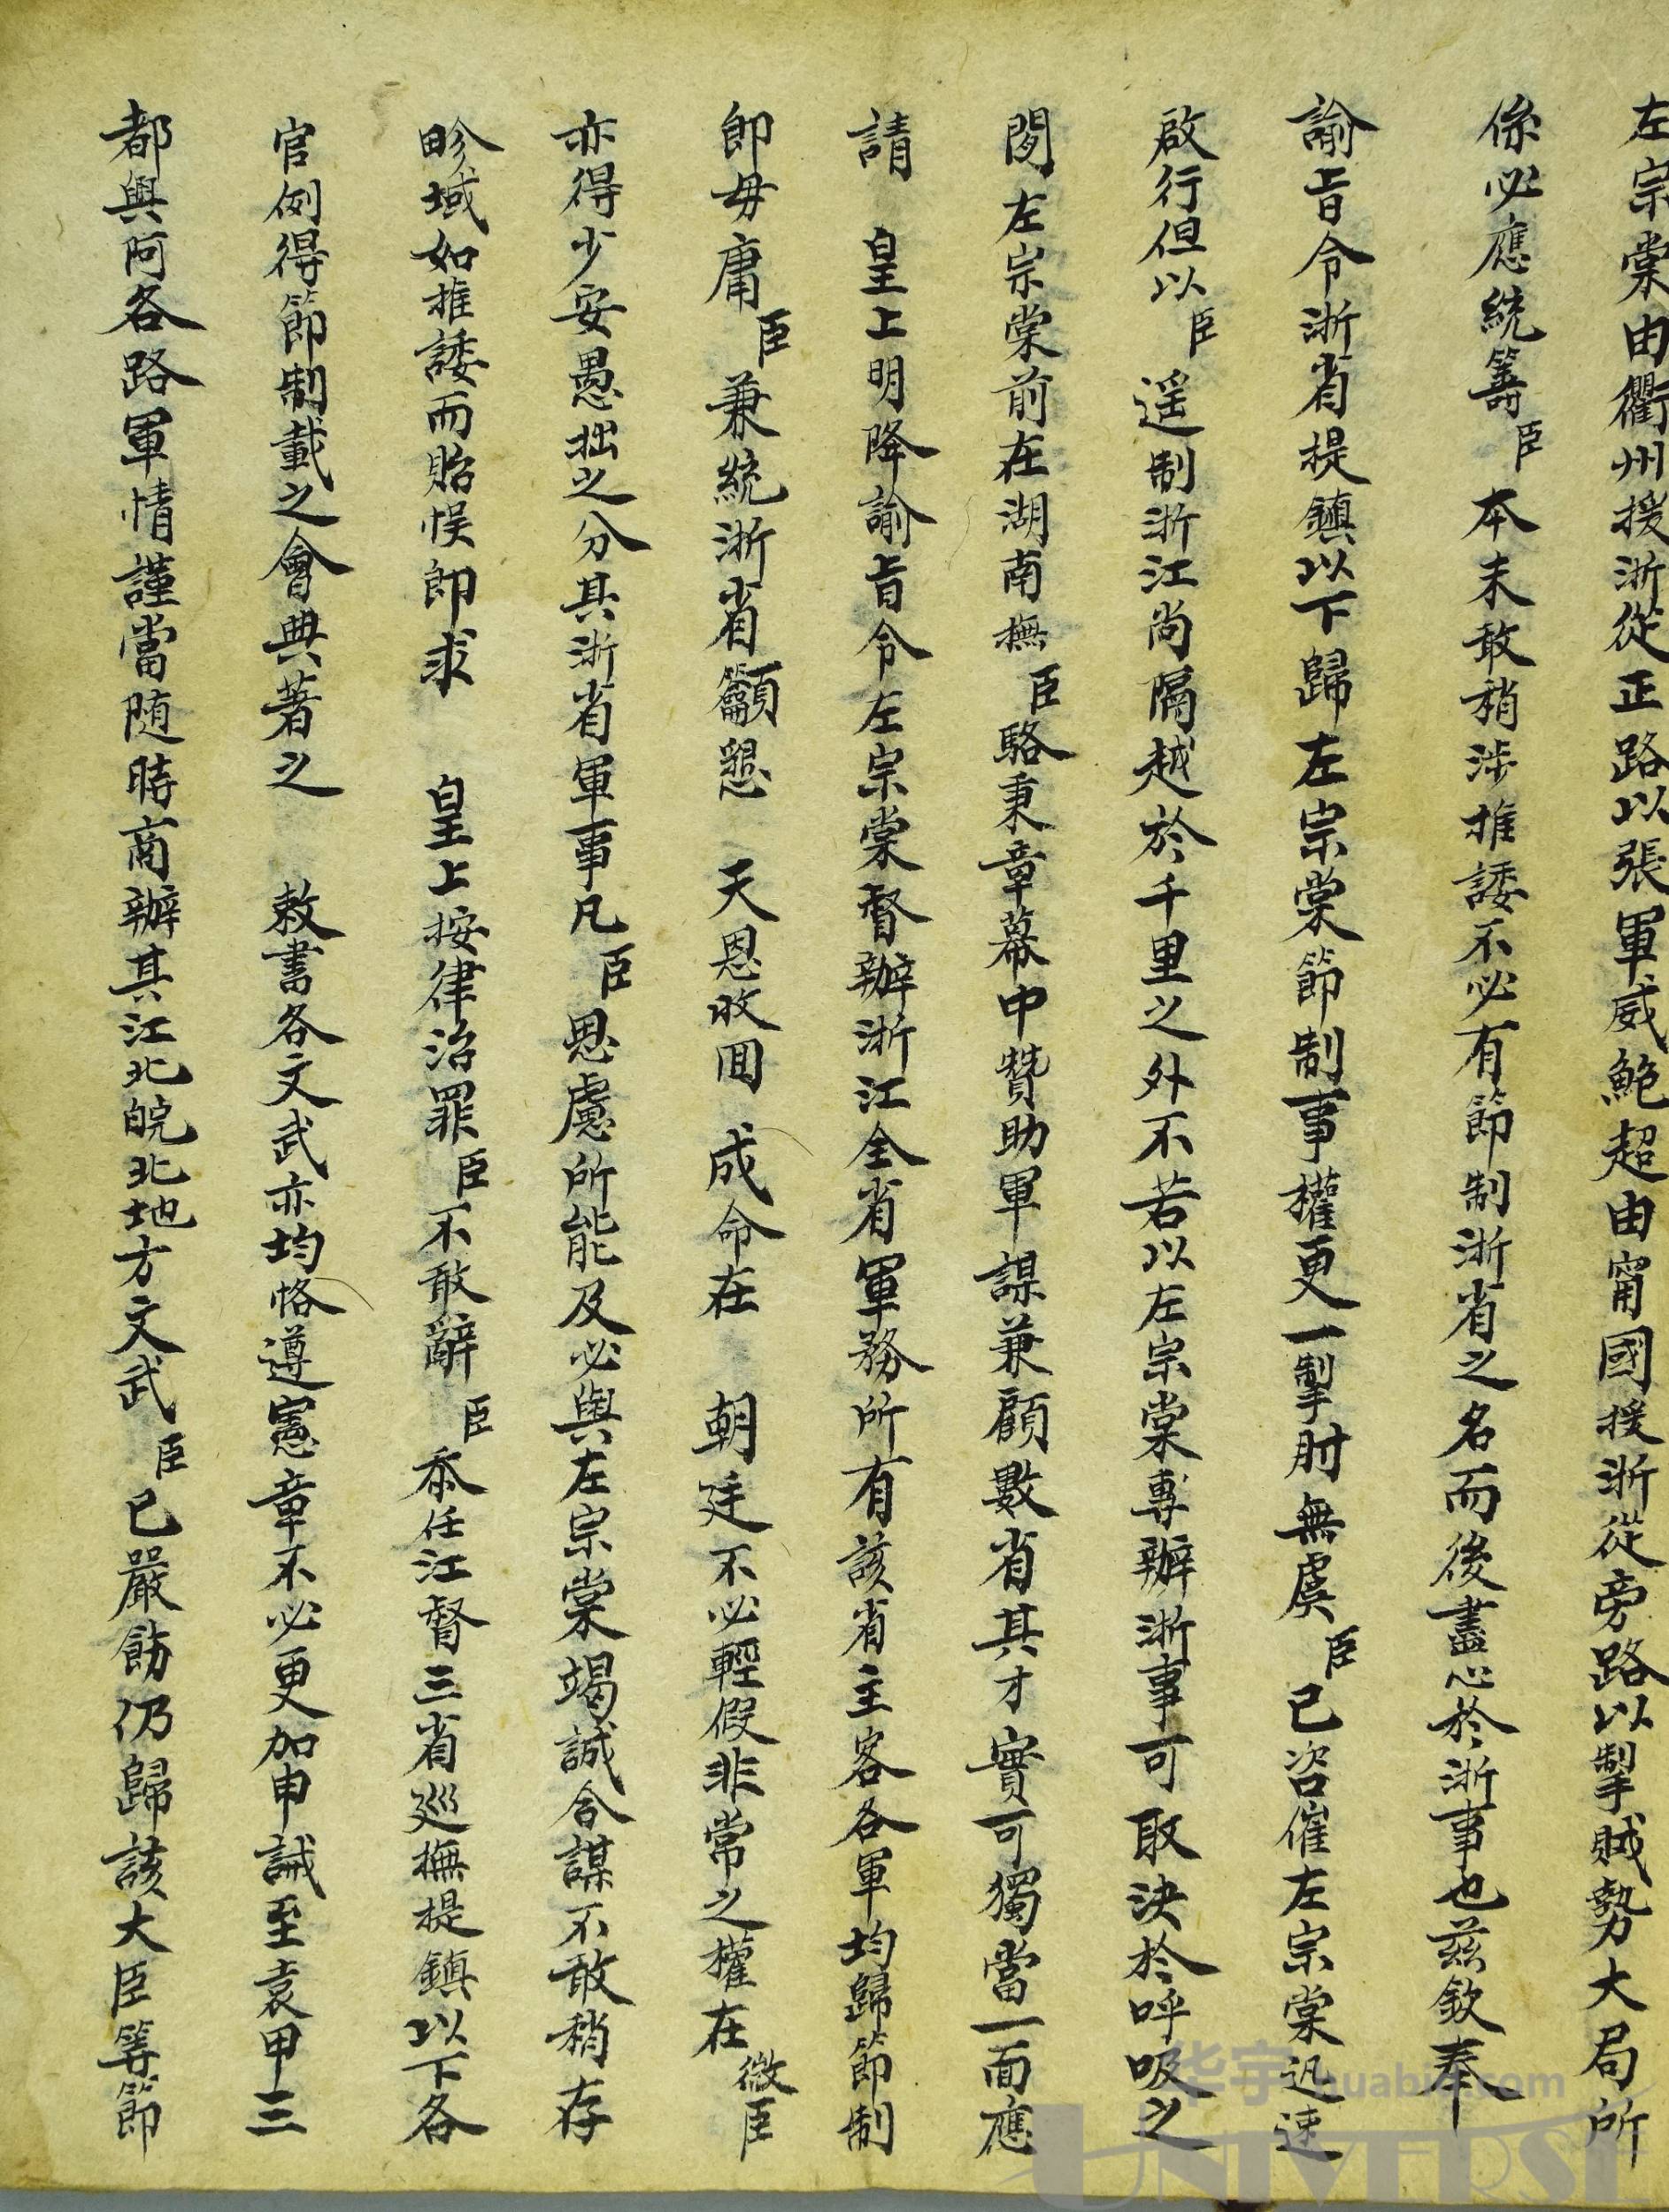 左宗棠由衢州援浙從正路以張軍威鮑超由甯國援浙從旁路以掣賊勢大局所
係必應統籌臣本未敢稍涉推諉不必有節制浙省之名而後盡心於浙事也茲欽奉
諭旨令浙省提鎮以下歸左宗棠節制事權更一掣肘無虞臣已咨催左宗棠迅速
啟行但以臣遥制浙江尚隔越於千里之外不若以左宗棠專辦浙事可取決於呼吸之
閒左宗棠前在湖南撫臣駱秉章幕中贊助軍謀兼顧數省其才實可獨當一面應
請 皇上明降諭旨令左宗棠督辦浙江全省軍務所有該省主客各軍均歸節制
即毋庸臣兼統浙省籲懇 天恩收囘 成命在 朝廷不必輕假非常之權在微臣
亦得少安愚拙之分其浙省軍事凡臣思慮所能及必與左宗棠竭誠合謀不敢稍存
畛域如推諉而貽悮即求 皇上按律治罪臣不敢辭臣忝任江督三省巡撫提鎮以下各
官例得節制載之會典著之 敕書各文武亦均恪遵憲章不必更加申誡至袁甲三
都興阿各路軍情謹當随時商辦其江北皖北地方文武臣已嚴飭仍歸該大臣等節